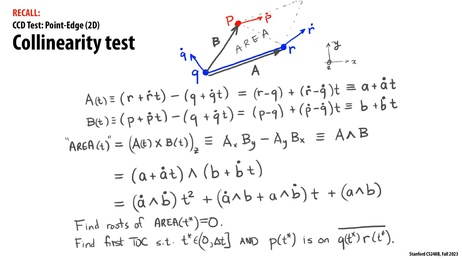 RECALL:
CCD Test: Point-Edge (2D)
Collinearity test
p ṗ
B AREA
q̇ ṙ
q A r
y
z x
A(t) ≡ (r + ṙt) − (q + q̇t) = (r−q) + (ṙ−q̇)t ≡ a + ȧt
B(t) ≡ (p + ṗt) − (q + q̇t) = (p−q) + (ṗ−q̇)t ≡ b + ḃt
"AREA(t)" = (A(t) × B(t))_z ≡ A_x B_y − A_y B_x ≡ A∧B
= (a + ȧt) ∧ (b + ḃt)
= (ȧ∧ḃ) t² + (ȧ∧b + a∧ḃ) t + (a∧b)
Find roots of AREA(t*)=0.
Find first TOC s.t. t*∈(0,Δt] AND p(t*) is on q(t*) r(t*).
Stanford CS248B, Fall 2023